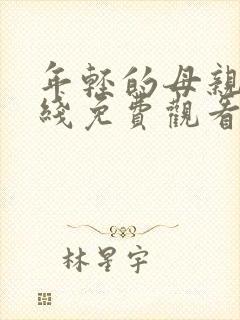 年輕的母親
綫免費觀看
林星宇